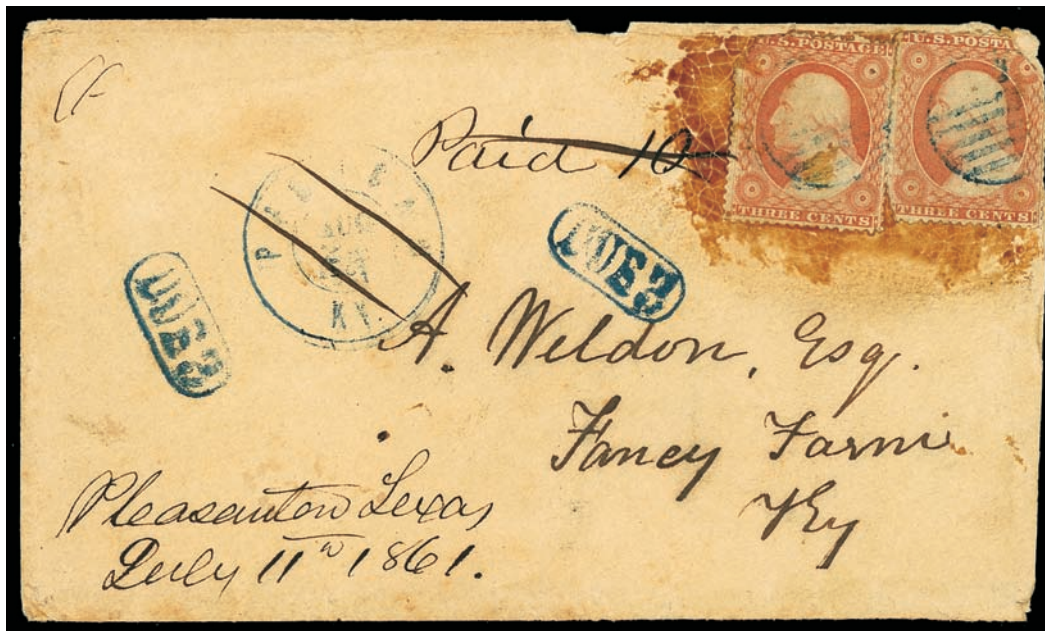 U.S. POSTAGE
U.S. POSTA
THREE CENTS
THREE CENTS
Paid 10
AUG
KY.
DUE 3
DUE 3
A. Weldon, Esq.
Fancy Farm
Ky
Pleasanton Texas
July 11th 1861.